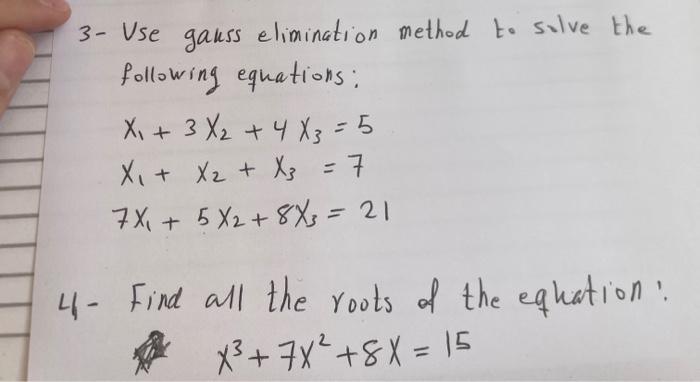 3- Use gauss elimination method to solve the
following equations:
X₁ + 3 X₂ + 4 X₃ = 5
X₁ + X₂ + X₃ = 7
7X₁ + 5 X₂ + 8X₃ = 21
4- Find all the roots of the equation:
X³ + 7X² + 8X = 15